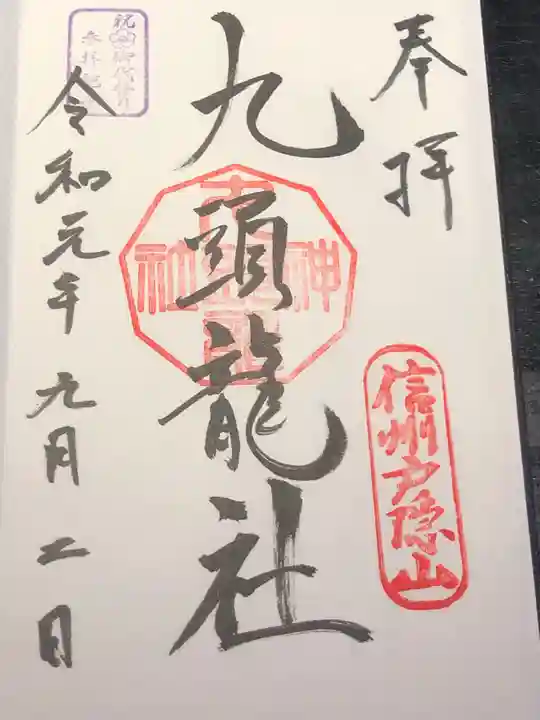 奉拝
信州戸隠山
九頭龍社
令和元年九月二日